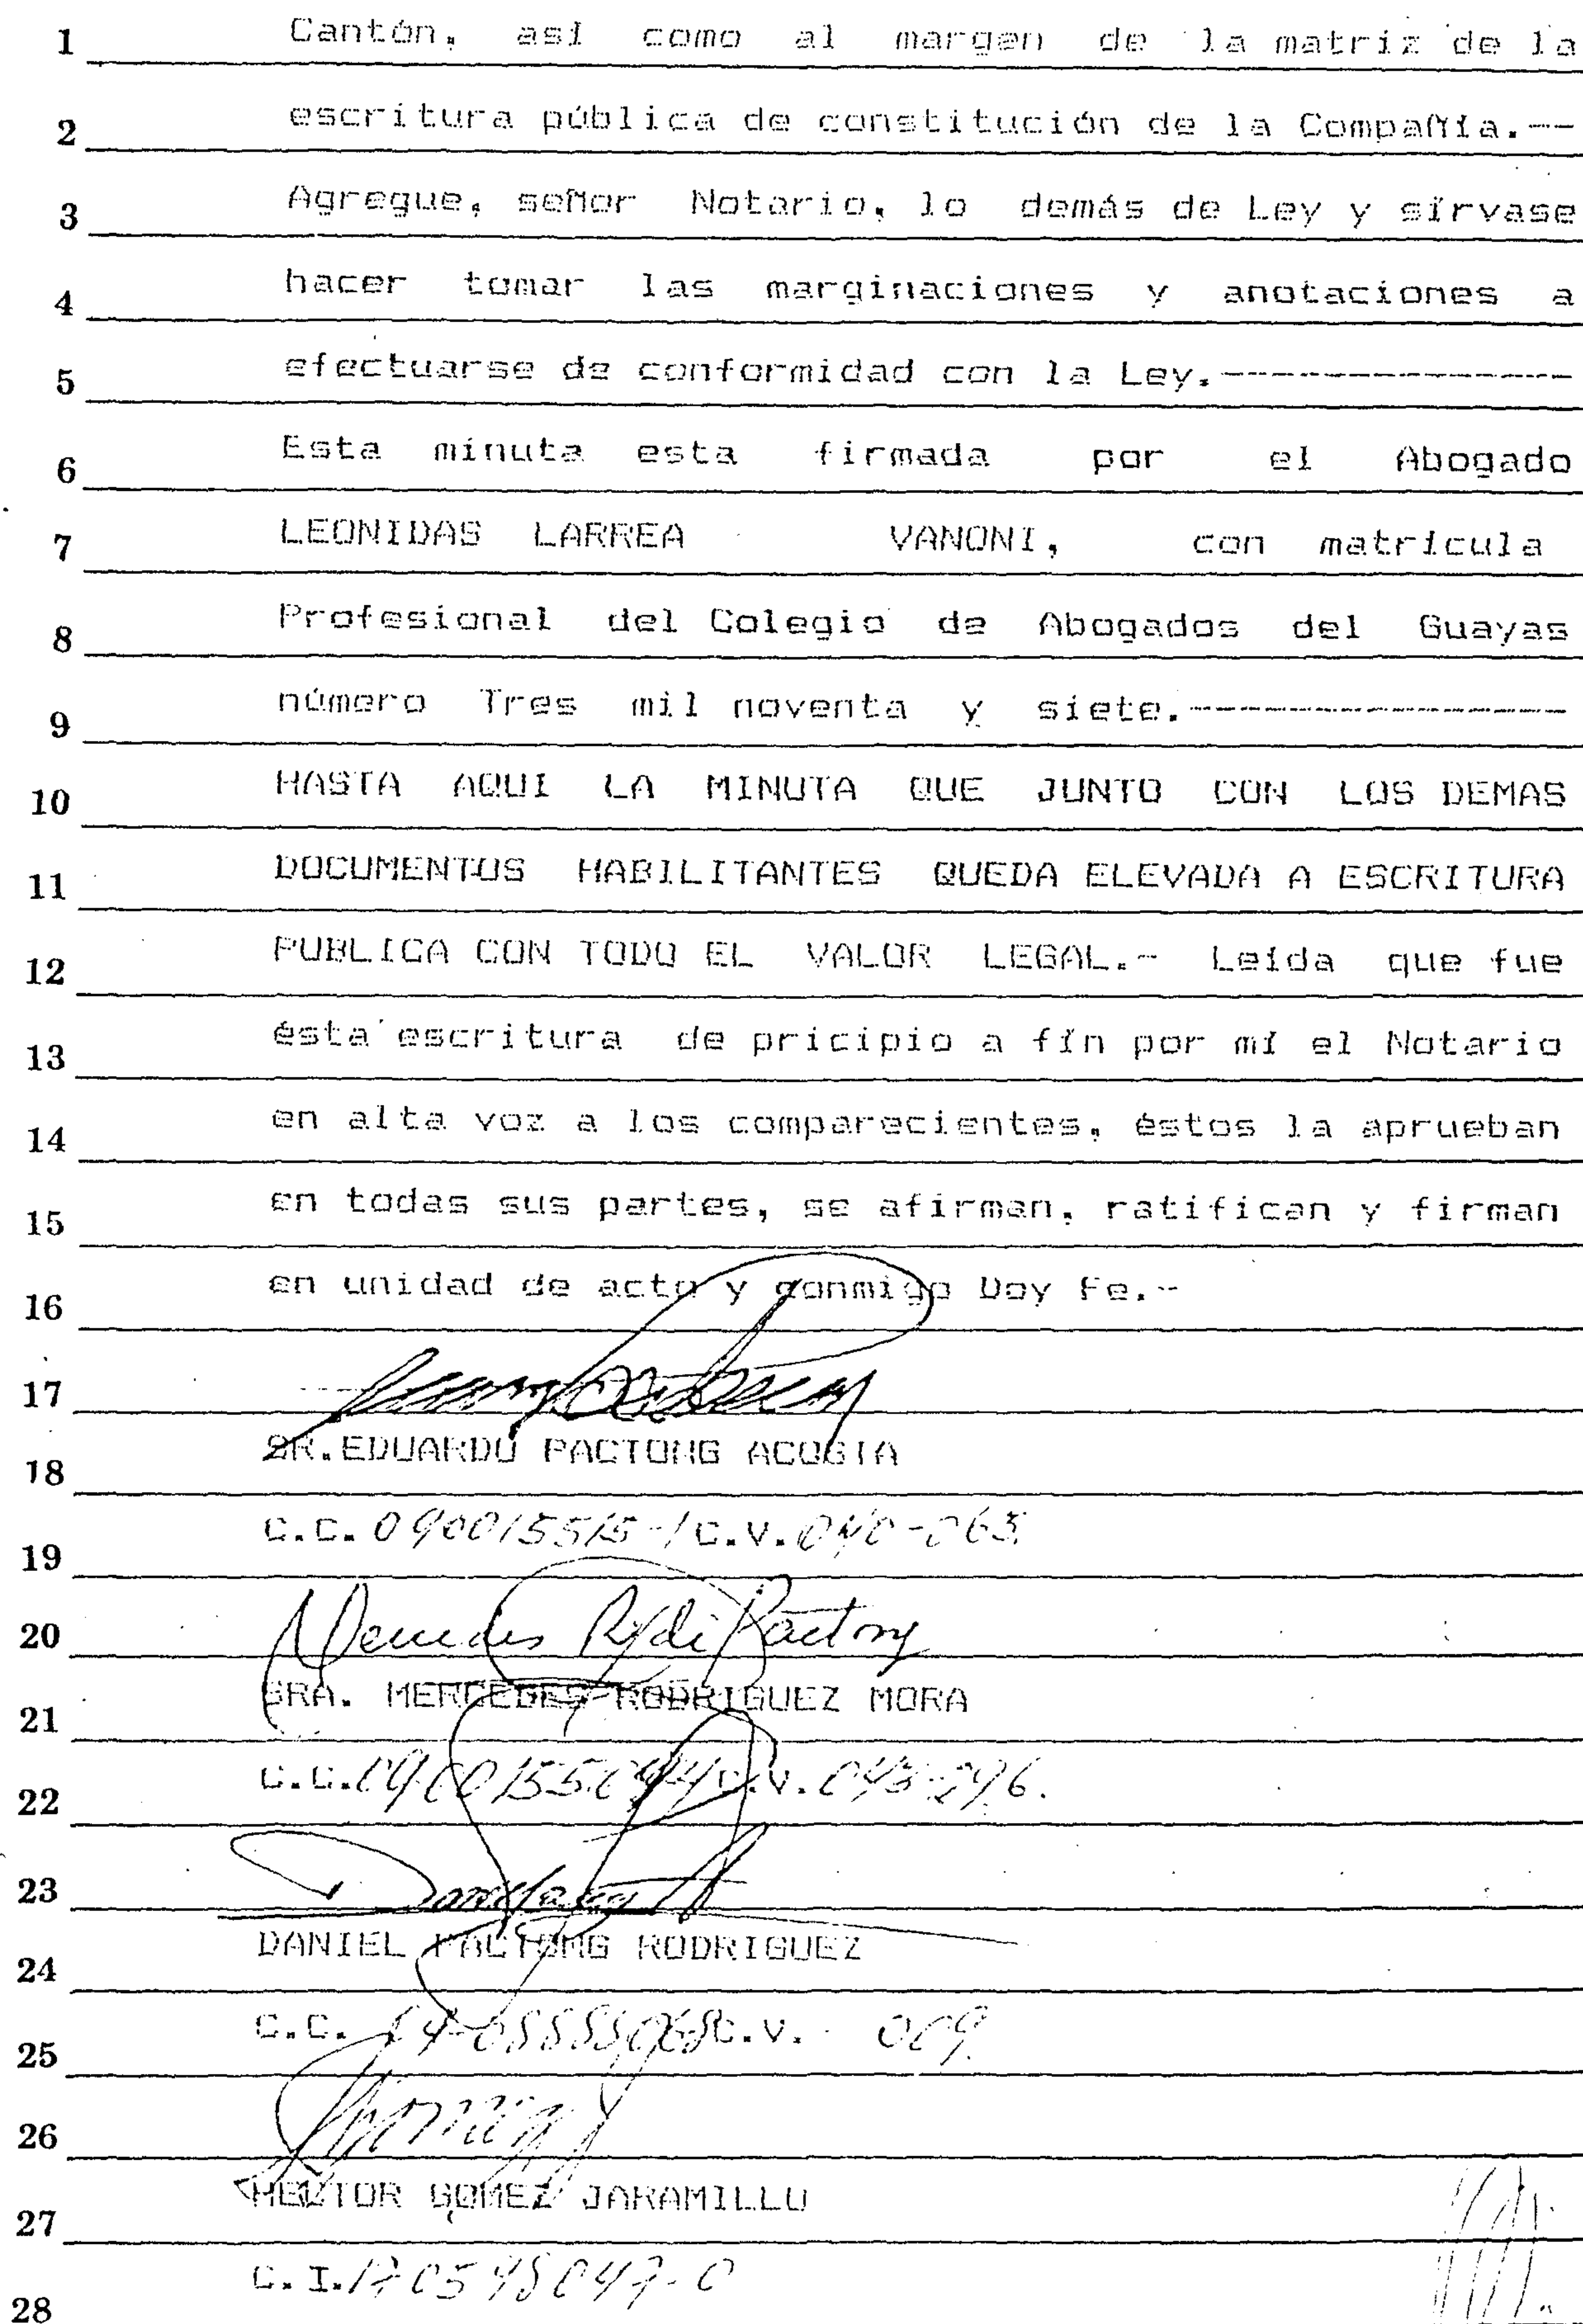 1 Cantón, así como al margen de la matriz de la
2 escritura pública de constitución de la Compañía.--
3 Agregue, señor Notario, lo demás de Ley y sírvase
4 hacer tomar las marginaciones y anotaciones a
5 efectuarse de conformidad con la Ley.-----------------
6 Esta minuta esta firmada por el Abogado
7 LEONIDAS LARREA VANONI, con matrícula
8 Profesional del Colegio de Abogados del Guayas
9 número Tres mil noventa y siete.------------------
10 HASTA AQUI LA MINUTA QUE JUNTO CON LOS DEMAS
11 DOCUMENTOS HABILITANTES QUEDA ELEVADA A ESCRITURA
12 PUBLICA CON TODO EL VALOR LEGAL.- Leída que fue
13 ésta escritura de pricipio a fín por mí el Notario
14 en alta voz a los comparecientes, éstos la aprueban
15 en todas sus partes, se afirman, ratifican y firman
16 en unidad de acto y conmigo Doy Fe.-
17
18 SR.EDUARDO PACTONG ACOSTA
19 C.C. 090015515-1 C.V.
20 Mercedes R. de Pactong
21 SRA. MERCEDES RODRIGUEZ MORA
22 C.C. C.V.
23
24 DANIEL PACTONG RODRIGUEZ
25 C.C. C.V. 009
26
27 HECTOR GOMEZ JARAMILLO
28 C.I.